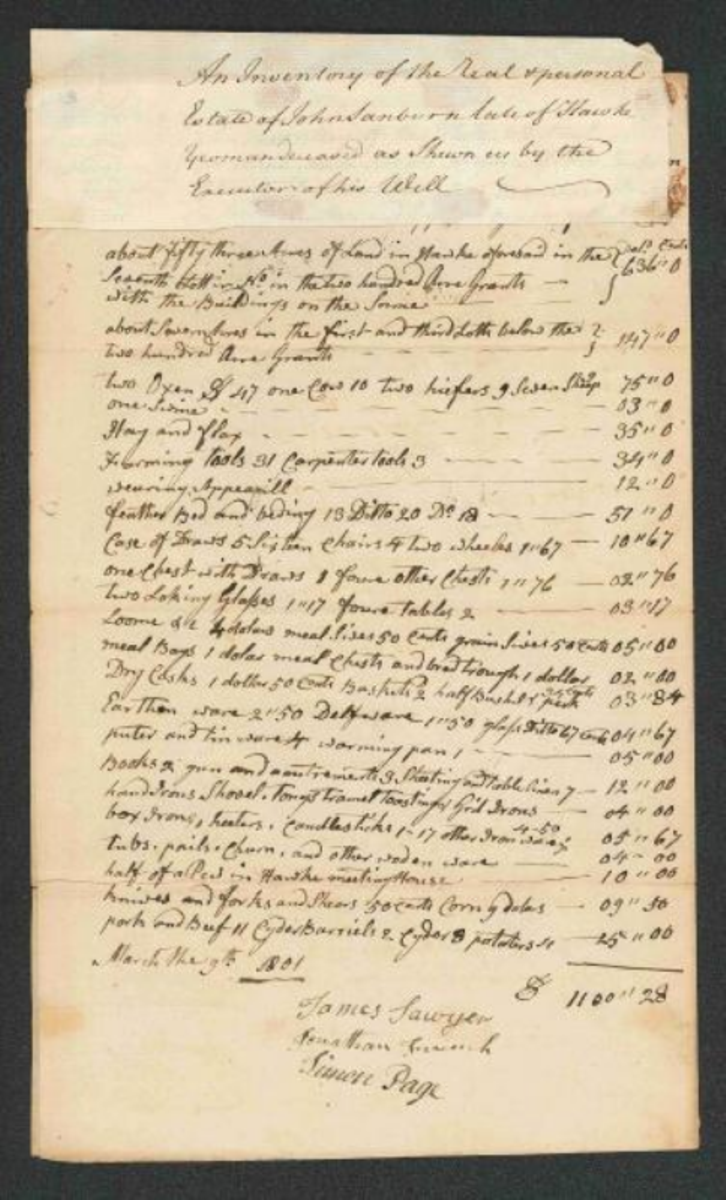 An Inventory of the Real & personal
Estate of John Sanborn late of Hawke
Yeoman deceased as Shewn us by the
Executor of his Will
dols Cents
about fifty three Acres of Land in Hawke aforesaid in the 636"0
Seventh Lott in No in the two hundred Acre Grants
with the Buildings on the Same
about Seven Acres in the first and third Lotts below the 147"0
two hundred Acre Grants
two Oxen 47 one Cow 10 two hiefers 9 Seven Sheep 9 75"0
one Swine 03"0
Hay and flax 35"0
Farming tools 31 Carpenter tools 3 34"0
wearing Appearill 12"0
feather Bed and beding 13 Ditto 20 Do 18 51"0
Case of Draws 5 Sixteen Chairs 4 two wheeles 1"67 10"67
one Chest with Draws 1 foure other Chests 1"76 02"76
two Loking Glasses 1"17 foure tables 2 03"17
Loome &c 4 dolars meal Sives 50 Cents grain Sives 50 Cents 05"00
meal Bags 1 dolar meal Chests and bred trough 1 dollar 02"00
Dry Casks 1 dollar 50 Cents Baskets 2 half Bushel & peck 03"84
Earthen ware 2"50 Delfware 1"50 glass Ditto 67 Cents 04"67
puter and tin ware 4 worming pan 1 05"00
Books 2 gun and accutrements 3 Sheeting and table linen 7 12"00
handirons Shovel & Tongs tramel toasting & Grid Irons 04"00
box Irons, heeters, Candlesticks 1-17 other Iron ware 4-50 05"67
tubs, pails, Churn, and other woden ware 04-00
half of a Pew in Hawke meeting House 10"00
knives and forks and Shears 50 Cents Corn 9 dolas 09"50
pork and Beef 11 Cyder Barriels 2 Cyder 8 potatoes 4 25"00
March the 9th 1801
1100"28
James Sawyer
Jonathan French
Simon Page